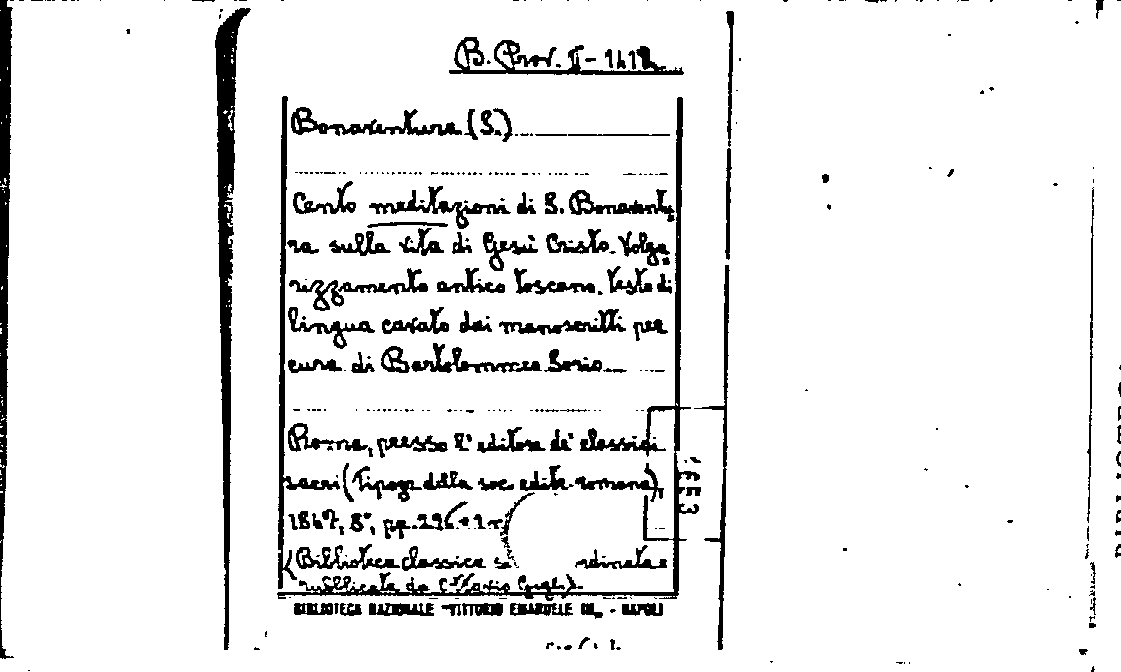 B. Prov. II-1412
Bonaventura (S.)
Cento meditazioni di S. Bonaventu
ra sulla vita di Gesù Cristo. Volga
rizzamento antico toscano. Testo di
lingua cavato dai manoscritti per
cura di Bartolommeo Sorio
Roma, presso l'editore de' classici
sacri (Tipogr. della soc. editr. romana),
1847, 8°, pp.
(Biblioteca classica rdinata e
pubblicata da Ottavio Gigli).
BIBLIOTECA NAZIONALE "VITTORIO EMANUELE III" - NAPOLI